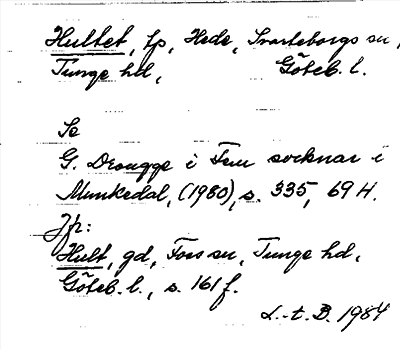 Hultet, tp, Hede, Svarteborgs sn,
Tunge hd, Göteb. l.
Se
G. Drougge i Fem socknar i
Munkedal, (1980), s. 335, 69 H.
Jfr:
Hult, gd, Foss sn, Tunge hd,
Göteb. l., s. 161 f.
L.-t. B. 1984